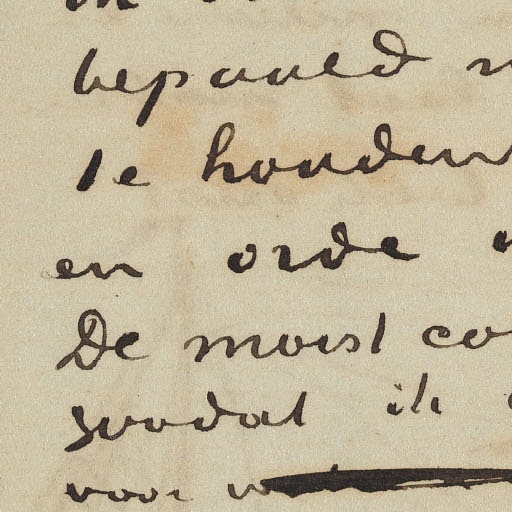 bepaald
te houden
en orde
De moist co
zoodat ik
voor